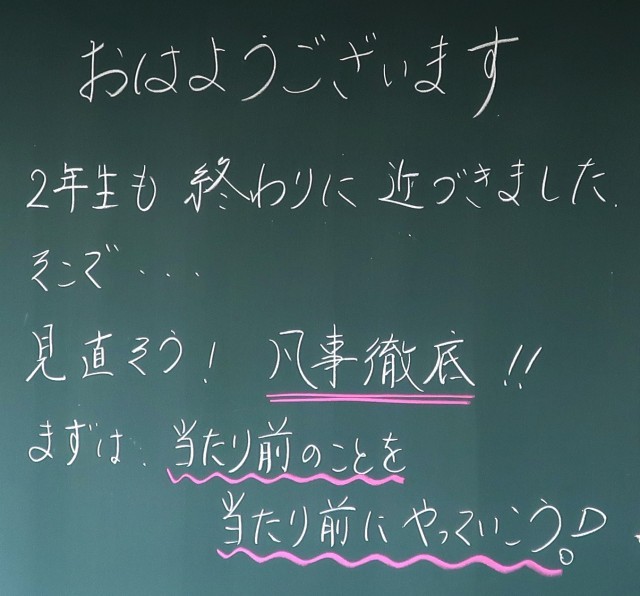 おはようございます
2年生も 終わりに 近づきました.
そこで・・・
見直そう! 凡事徹底!!
まずは、当たり前のことを
当たり前に やっていこう!